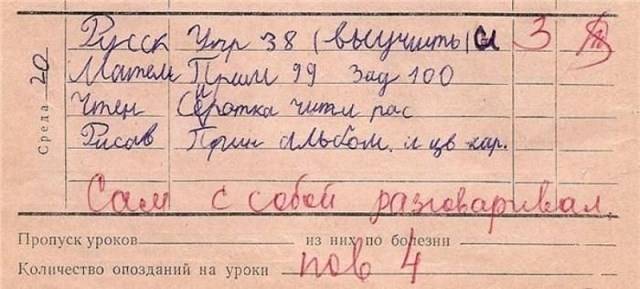 Среда 20
Русск Упр 38 (выучить) 3
Матем Прим 99 Зад 100
Чтен Серотка читл рас
Рисов Прин альбом. и цв кар.
Сам с собой разговаривал.
Пропуск уроков из них по болезни
Количество опозданий на уроки пов 4